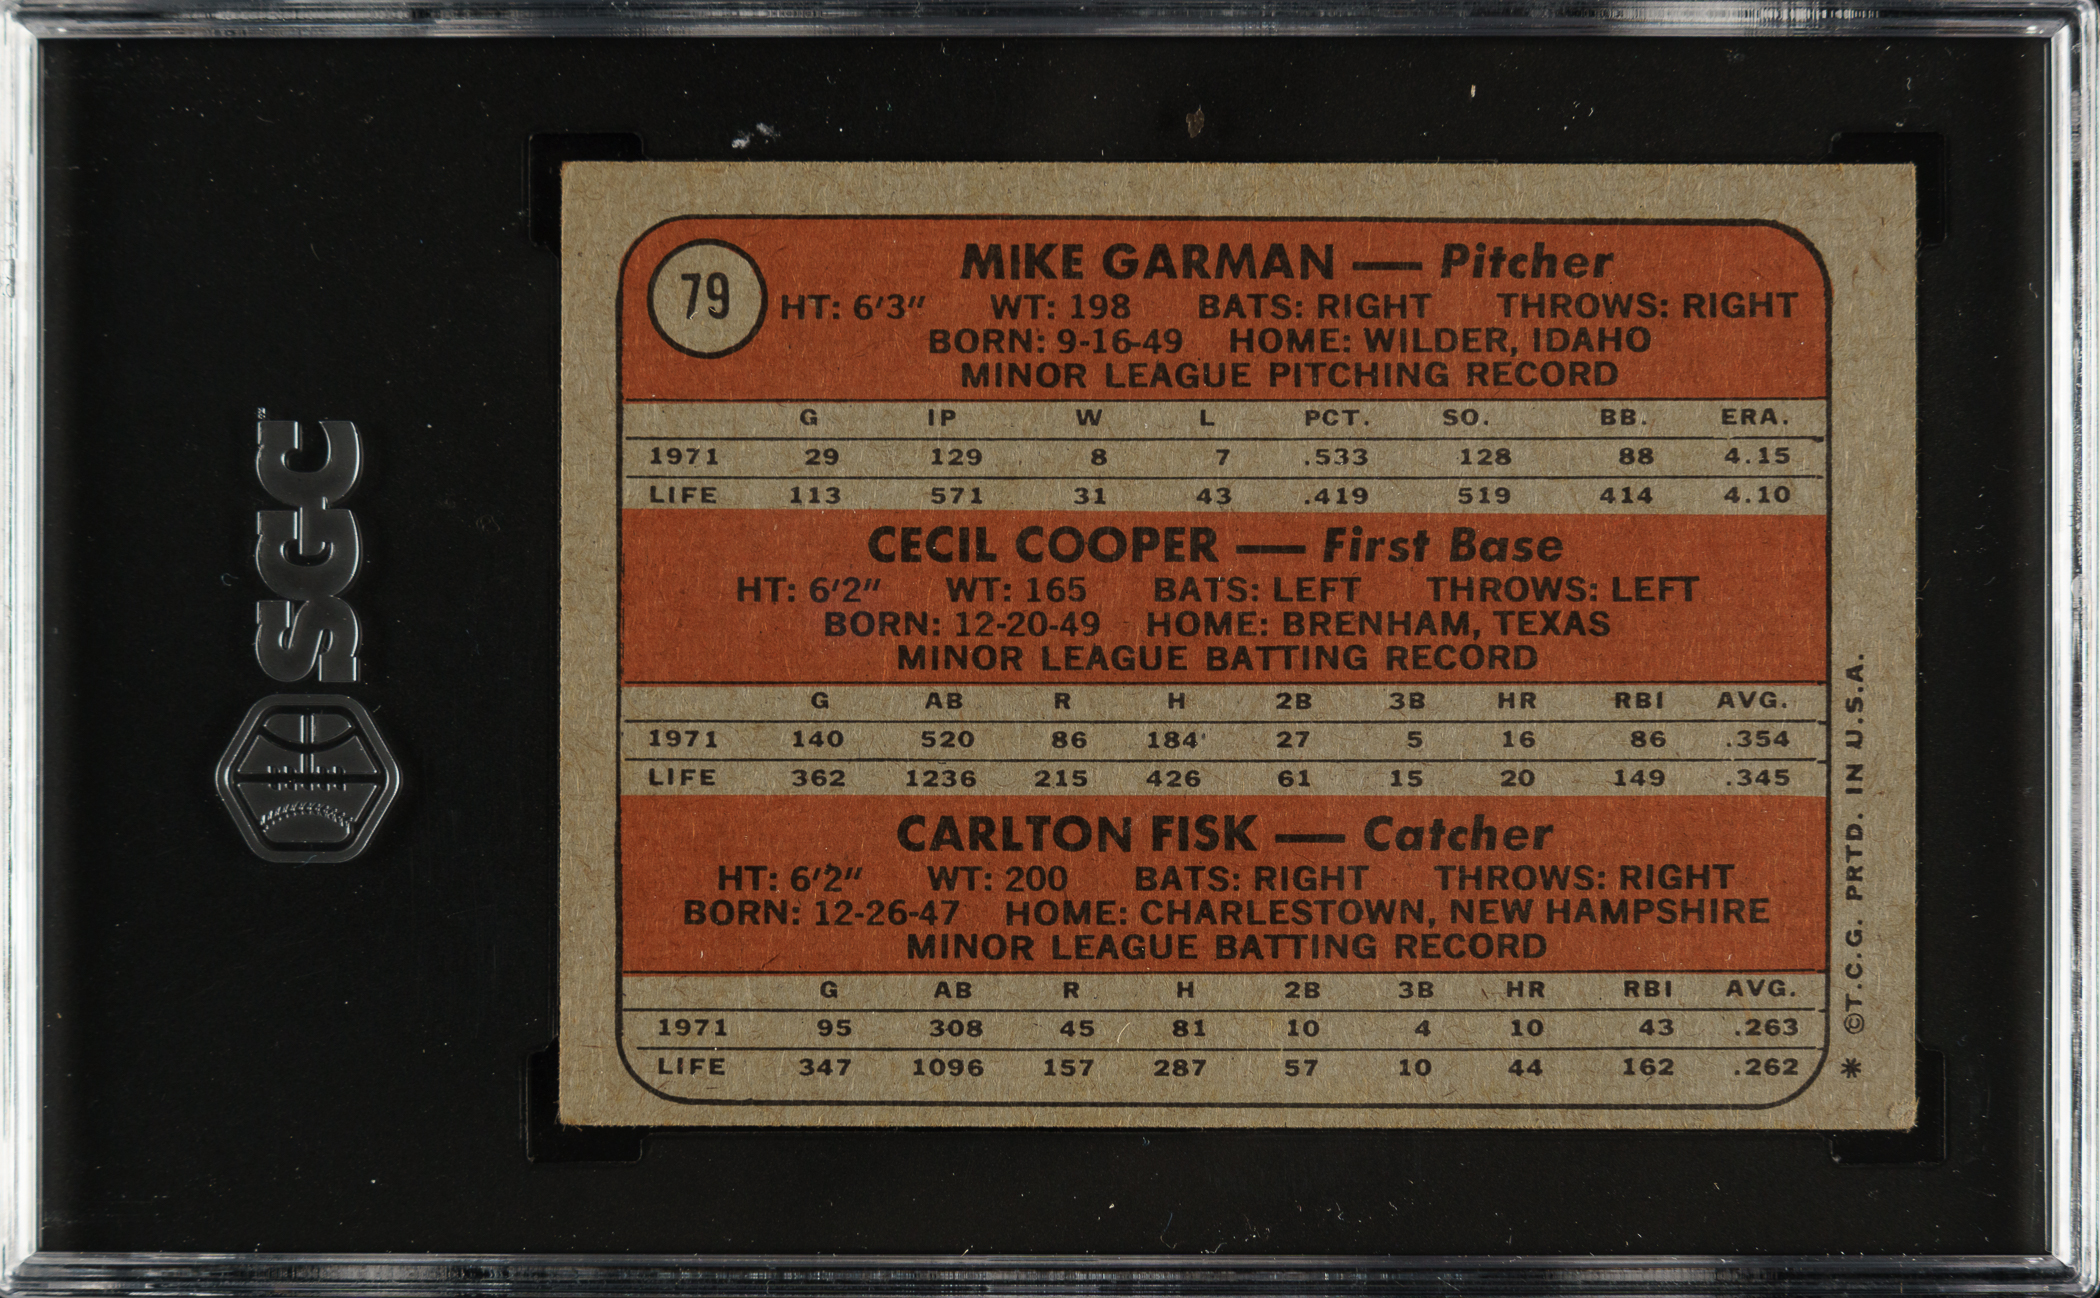 79
MIKE GARMAN — Pitcher
HT: 6'3" WT: 198 BATS: RIGHT THROWS: RIGHT
BORN: 9-16-49 HOME: WILDER, IDAHO
MINOR LEAGUE PITCHING RECORD
G IP W L PCT. SO. BB. ERA.
1971 29 129 8 7 .533 128 88 4.15
LIFE 113 571 31 43 .419 519 414 4.10
CECIL COOPER — First Base
HT: 6'2" WT: 165 BATS: LEFT THROWS: LEFT
BORN: 12-20-49 HOME: BRENHAM, TEXAS
MINOR LEAGUE BATTING RECORD
G AB R H 2B 3B HR RBI AVG.
1971 140 520 86 184 27 5 16 86 .354
LIFE 362 1236 215 426 61 15 20 149 .345
CARLTON FISK — Catcher
HT: 6'2" WT: 200 BATS: RIGHT THROWS: RIGHT
BORN: 12-26-47 HOME: CHARLESTOWN, NEW HAMPSHIRE
MINOR LEAGUE BATTING RECORD
G AB R H 2B 3B HR RBI AVG.
1971 95 308 45 81 10 4 10 43 .263
LIFE 347 1096 157 287 57 10 44 162 .262
* ©T.C.G. PRTD. IN U.S.A.
SGC™